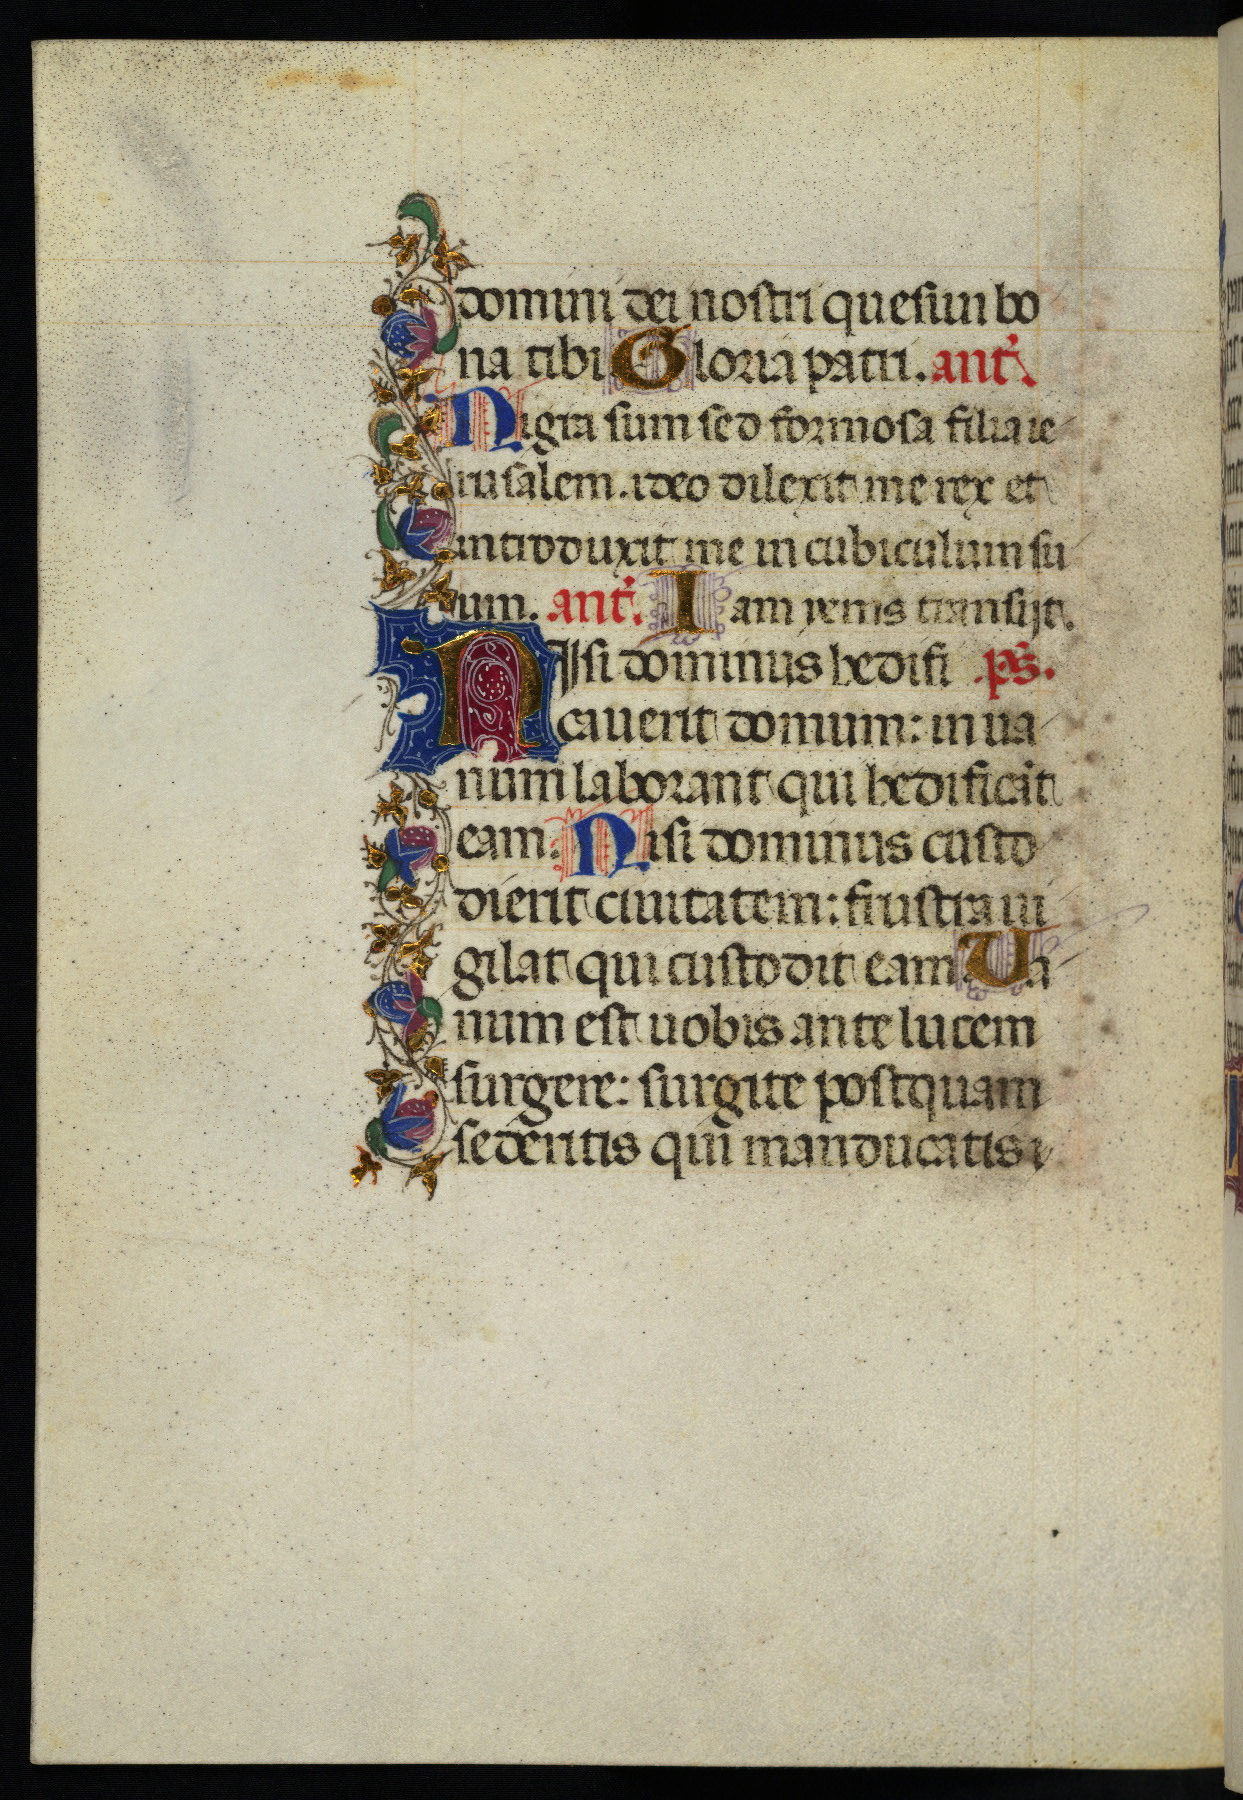 domini dei nostri quesiui bo
na tibi Gloria patri. ant.
Nigra sum sed formosa filia ie
rusalem. ideo dilexit me rex et
introduxit me in cubiculum su
um. ant. Iam yems transijt.
NIsi dominus hedifi ps.
cauerit domum: in ua
num laborant qui hedificāt
eam. Nisi dominus custo
dierit ciuitatem: frustra ui
gilat qui custodit eam. Va
num est uobis ante lucem
surgere: surgite postquam
sederitis qui manducatis